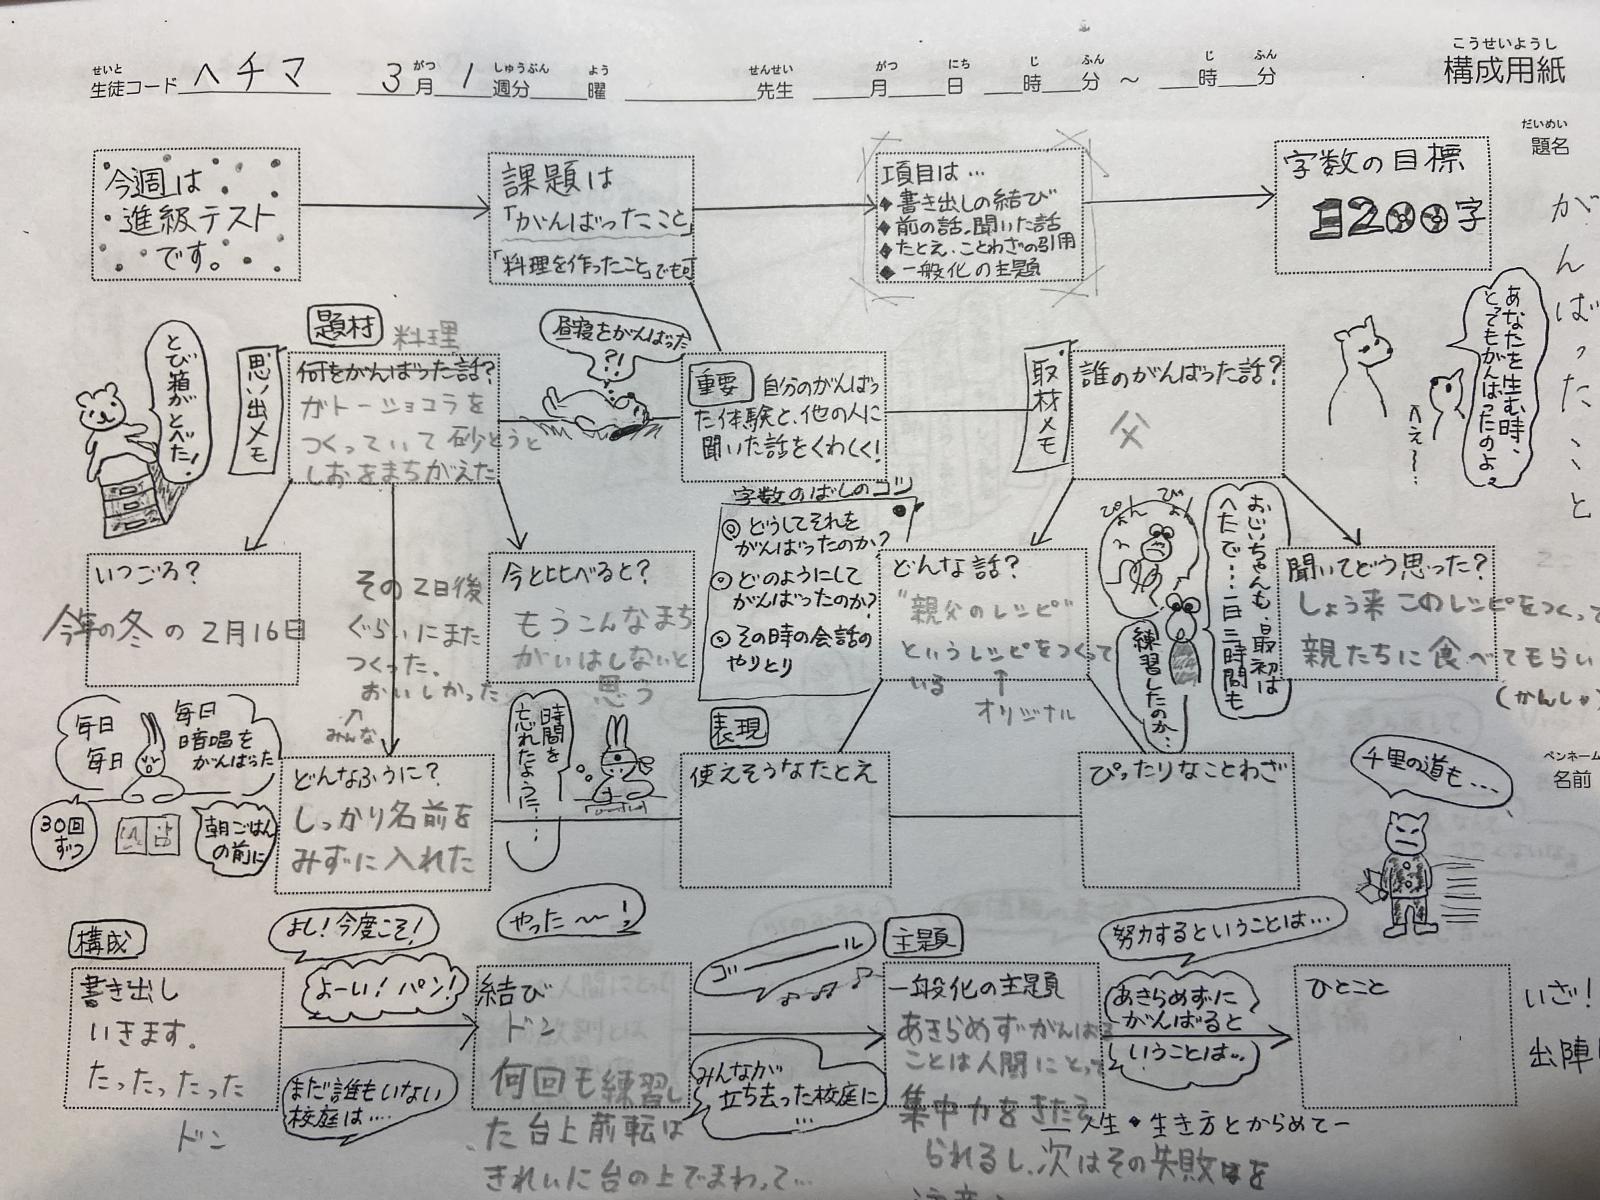 せいと がつ しゅうぶん よう せんせい がつ にち じ ふん じ ふん
生徒コード ヘチマ 3月 1週分 曜 先生 月 日 時 分 ～ 時 分
こうせいようし
構成用紙
だいめい
題名
がんばったこと
今週は
進級テスト
です。
課題は
「がんばったこと」
「料理を作ったこと」でも可
項目は…
◆書き出しの結び
◆前の話。聞いた話
◆たとえ・ことわざの引用
◆一般化の主題
字数の目標
1200字
とび箱がとべた！
思い出メモ
題材
料理
何をがんばった話？
ガトーショコラを
つくっていて砂とうと
しおをまちがえた
昼寝をがんばった
?!
重要 自分のがんばっ
た体験と、他の人に
聞いた話をくわしく！
取材メモ
誰のがんばった話？
父
あなたを生む時、
とてもがんばったのよ
へえ～…
いつごろ？
今年の冬の2月16日
その2日後
ぐらいにまた
つくった。
おいしかった
みんな
今と比べると？
もうこんなまち
がいはしないと
思う
字数のばしのコツ
◎どうしてそれを
がんばったのか？
◎どのようにして
がんばったのか？
◎その時の会話の
やりとり
どんな話？
“親父のレシピ”
というレシピをつくって
いる
オリジナル
ぴょん ぴょん
おじいちゃんも、最初は
へたで…一日三時間も
練習したのか…
聞いてどう思った？
しょう来このレシピをつくって
親たちに食べてもらい
(かんしゃ)
毎日
毎日
毎日
暗唱を
がんばった
30回
ずつ
朝ごはん
の前に
どんなふうに？
しっかり名前を
みずに入れた
時間を
忘れたように…
表現
使えそうなたとえ
ぴったりなことわざ
千里の道も…
ペンネーム
名前
構成
書き出し
いきます。
たったったった
ドン
よし！今度こそ！
よーい！パン！
まだ誰もいない
校庭は…
やった～～！
結び
ドン
何回も練習し
た台上前転は
きれいに台の上でまわって…
ゴール
みんなが
立ち去った校庭に
…
主題
一般化の主題
あきらめずがんばる
ことは人間にとって
集中力をきたえ
られるし、次はその失敗を
人生・生き方とからめてー
努力するということは…
あきらめずに
がんばると
いうことは…
ひとこと
いざ！
出陣！